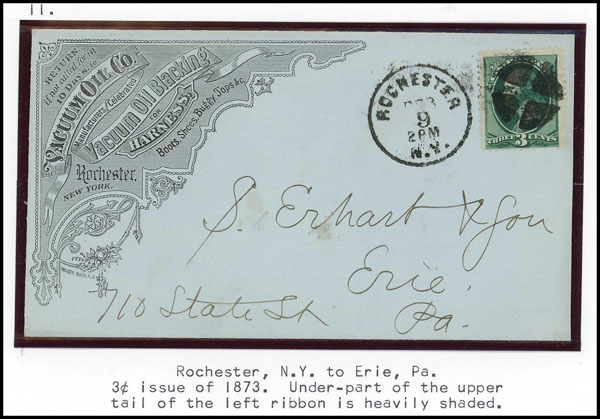 11.
RETURN
if not called for in
10 Days to
VACUUM OIL Co.
Manufacturers of Celebrated
Vacuum Oil Blacking
FOR
HARNESS,
Boots, Shoes, Buggy Tops &c.
Rochester,
NEW YORK.
ROCHESTER
9
2 PM
N.Y.
THREE 3 CENTS
S. Erhart & Son
Erie,
710 State St. Pa.
Rochester, N.Y. to Erie, Pa.
3¢ issue of 1873. Under-part of the upper
tail of the left ribbon is heavily shaded.